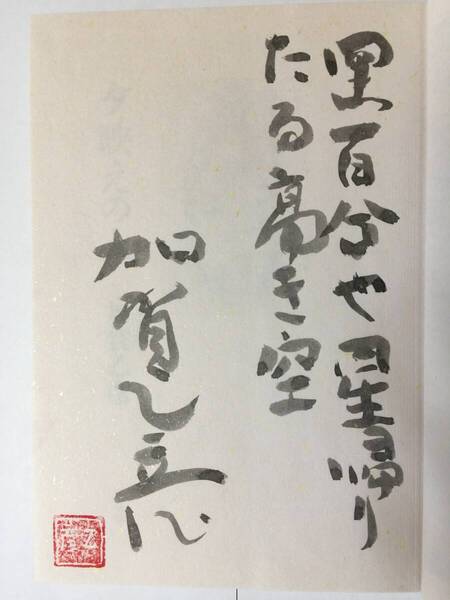 黒百合や星帰り
たる高き空
加賀乙彦